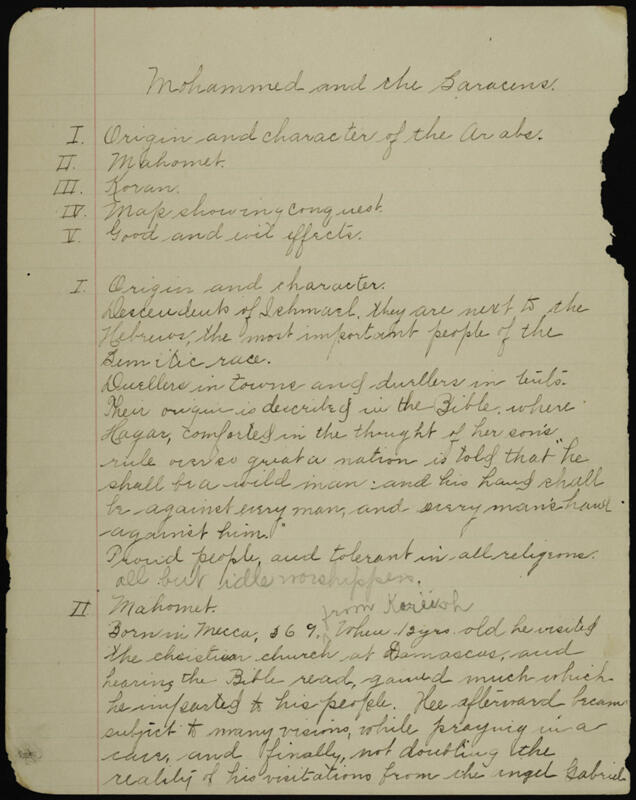 Mohammed and the Saracens.
I. Origin and character of the Arabs.
II. Mahomet.
III. Koran.
IV. Map showing conquest.
V. Good and evil effects.
I. Origin and character.
Descendents of Ishmael, they are next to the
Hebrews, the most important people of the
Semitic race.
Dwellers in towns and dwellers in tents.
Their origin is described in the Bible, where
Hagar, comforted in the thought of her son's
rule over so great a nation is told that "he
shall be a wild man: and his hand shall
be against every man, and every man's hand
against him."
Proud people, and tolerant in all religions.
all but idle worshippers.
II Mahomet. from Koreish
Born in Mecca, 569. When 12 yrs. old he visited
the christian church at Damascus, and
hearing the Bible read, gained much which
he imparted to his people. Hee afterward became
subject to many visions, while praying in a
cave, and finally, not doubting the
reality of his visitations from the angel Gabriel